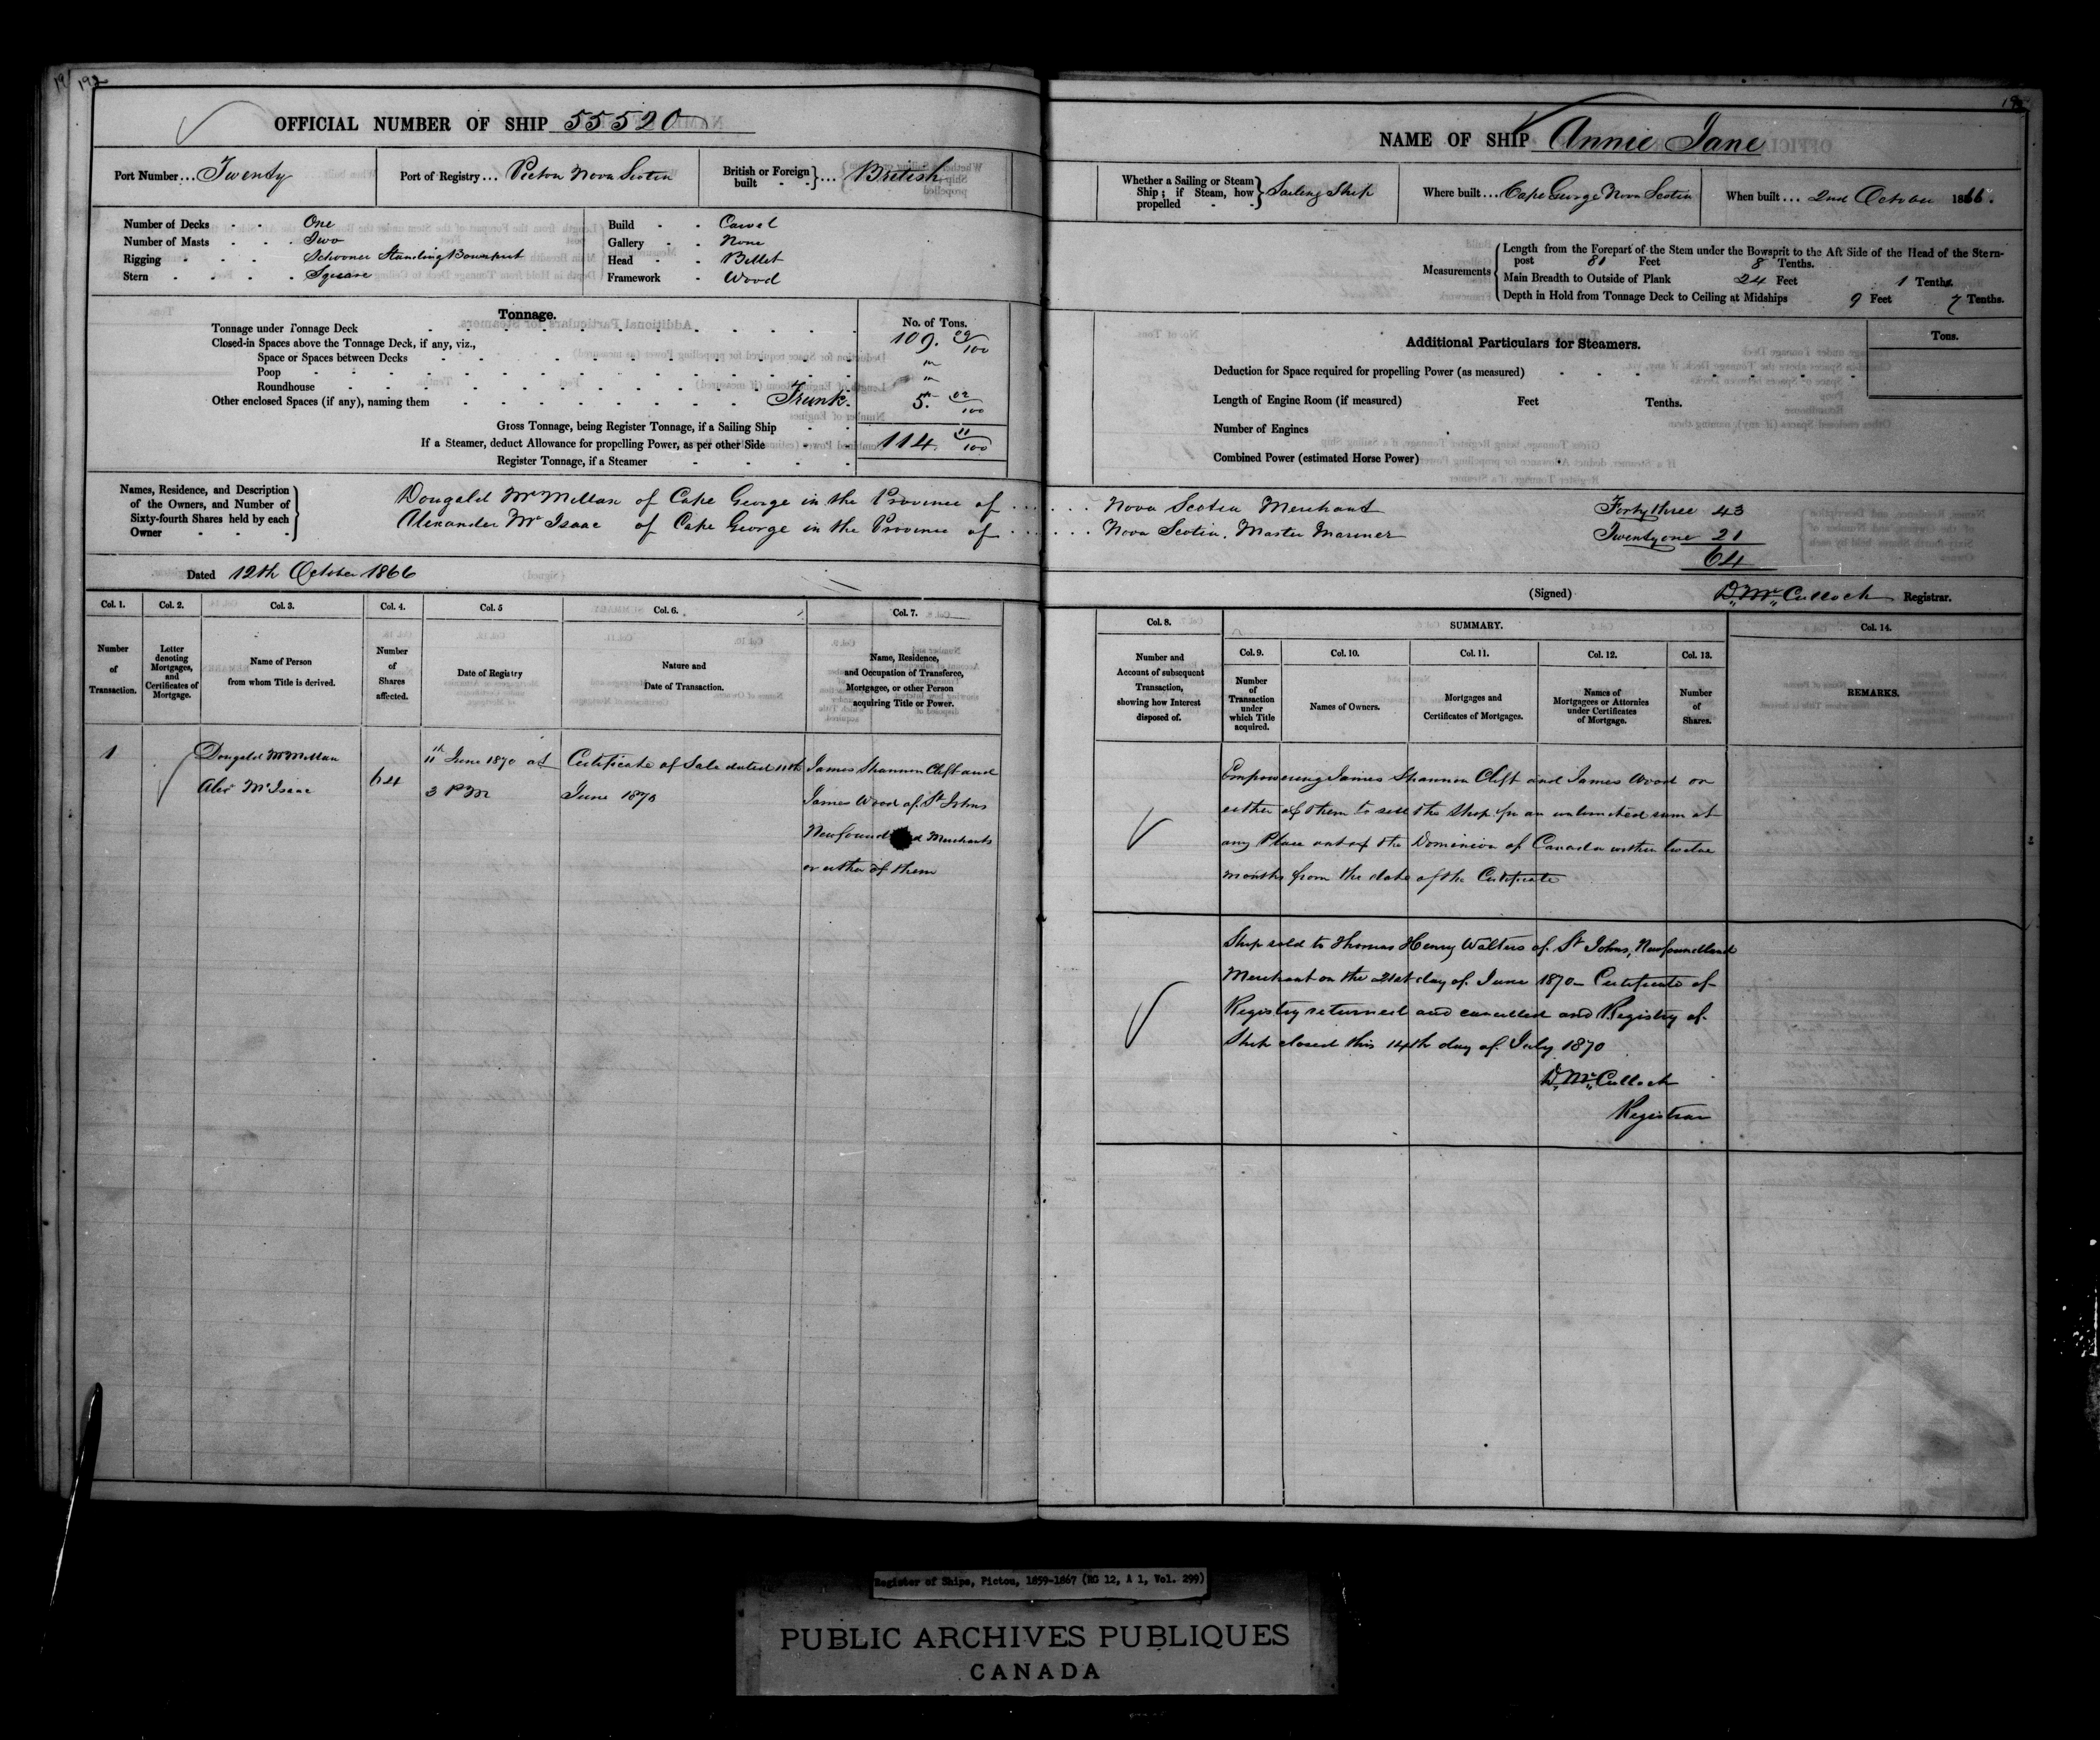 192
OFFICIAL NUMBER OF SHIP 55520
Port Number ... Twenty
Port of Registry ... Pictou Nova Scotia
British or Foreign built } ... British
Number of Decks - - One
Number of Masts - - Two
Rigging - - - Schooner Standing Bowsprit
Stern - - - - Square
Build - - Carvel
Gallery - - None
Head - - Billet
Framework - Wood
Tonnage.
No. of Tons.
Tonnage under Tonnage Deck 109. 09/100
Closed-in Spaces above the Tonnage Deck, if any, viz.,
Space or Spaces between Decks
Poop
Roundhouse
Other enclosed Spaces (if any), naming them Trunk. 5. 02/100
Gross Tonnage, being Register Tonnage, if a Sailing Ship
114. 11/100
If a Steamer, deduct Allowance for propelling Power, as per other Side
Register Tonnage, if a Steamer
Names, Residence, and Description
of the Owners, and Number of
Sixty-fourth Shares held by each
Owner
Dougald McMillan of Cape George in the Province of ...
Alexander McIsaac of Cape George in the Province of ...
Dated 12th October 1866
Col. 1. Col. 2. Col. 3. Col. 4. Col. 5 Col. 6. Col. 7.
Number of Transaction.
Letter denoting Mortgages, and Certificates of Mortgage.
Name of Person from whom Title is derived.
Number of Shares affected.
Date of Registry
Nature and Date of Transaction.
Name, Residence, and Occupation of Transferee, Mortgagee, or other Person acquiring Title or Power.
1
Dougald McMillan
Alexr McIsaac
64
11th June 1870 at
3 PM
Certificate of Sale dated 11th
June 1870
James Shannon Clift and
James Wood of St Johns
Newfoundland Merchants
or either of them
NAME OF SHIP Annie Jane
Whether a Sailing or Steam Ship; if Steam, how propelled } Sailing Ship
Where built ... Cape George Nova Scotia
When built ... 2nd October 1866.
Measurements
Length from the Forepart of the Stem under the Bowsprit to the Aft Side of the Head of the Stern-
post 81 Feet 8 Tenths.
Main Breadth to Outside of Plank 24 Feet 1 Tenths.
Depth in Hold from Tonnage Deck to Ceiling at Midships 9 Feet 7 Tenths.
Additional Particulars for Steamers.
Tons.
Deduction for Space required for propelling Power (as measured)
Length of Engine Room (if measured) Feet Tenths.
Number of Engines
Combined Power (estimated Horse Power)
... Nova Scotia Merchant Forty three 43
... Nova Scotia, Master Mariner Twenty one 21
64
(Signed) D. McCulloch Registrar.
Col. 8. SUMMARY. Col. 14.
Col. 9. Col. 10. Col. 11. Col. 12. Col. 13.
Number and Account of subsequent Transaction, showing how Interest disposed of.
Number of Transaction under which Title acquired.
Names of Owners.
Mortgages and Certificates of Mortgages.
Names of Mortgagees or Attornies under Certificates of Mortgage.
Number of Shares.
REMARKS.
Empowering James Shannon Clift and James Wood or
either of them to sell the Ship for an unlimited sum at
any Place out of the Dominion of Canada within twelve
months from the date of the Certificate
Ship sold to Thomas Henry Walters of St Johns, Newfoundland
Merchant on the 21st day of June 1870 - Certificate of
Registry returned and cancelled and Registry of
Ship closed this 14th day of July 1870
D. McCulloch
Registrar
Register of Ships, Pictou, 1859-1867 (RG 12, A 1, Vol. 299)
PUBLIC ARCHIVES PUBLIQUES
CANADA